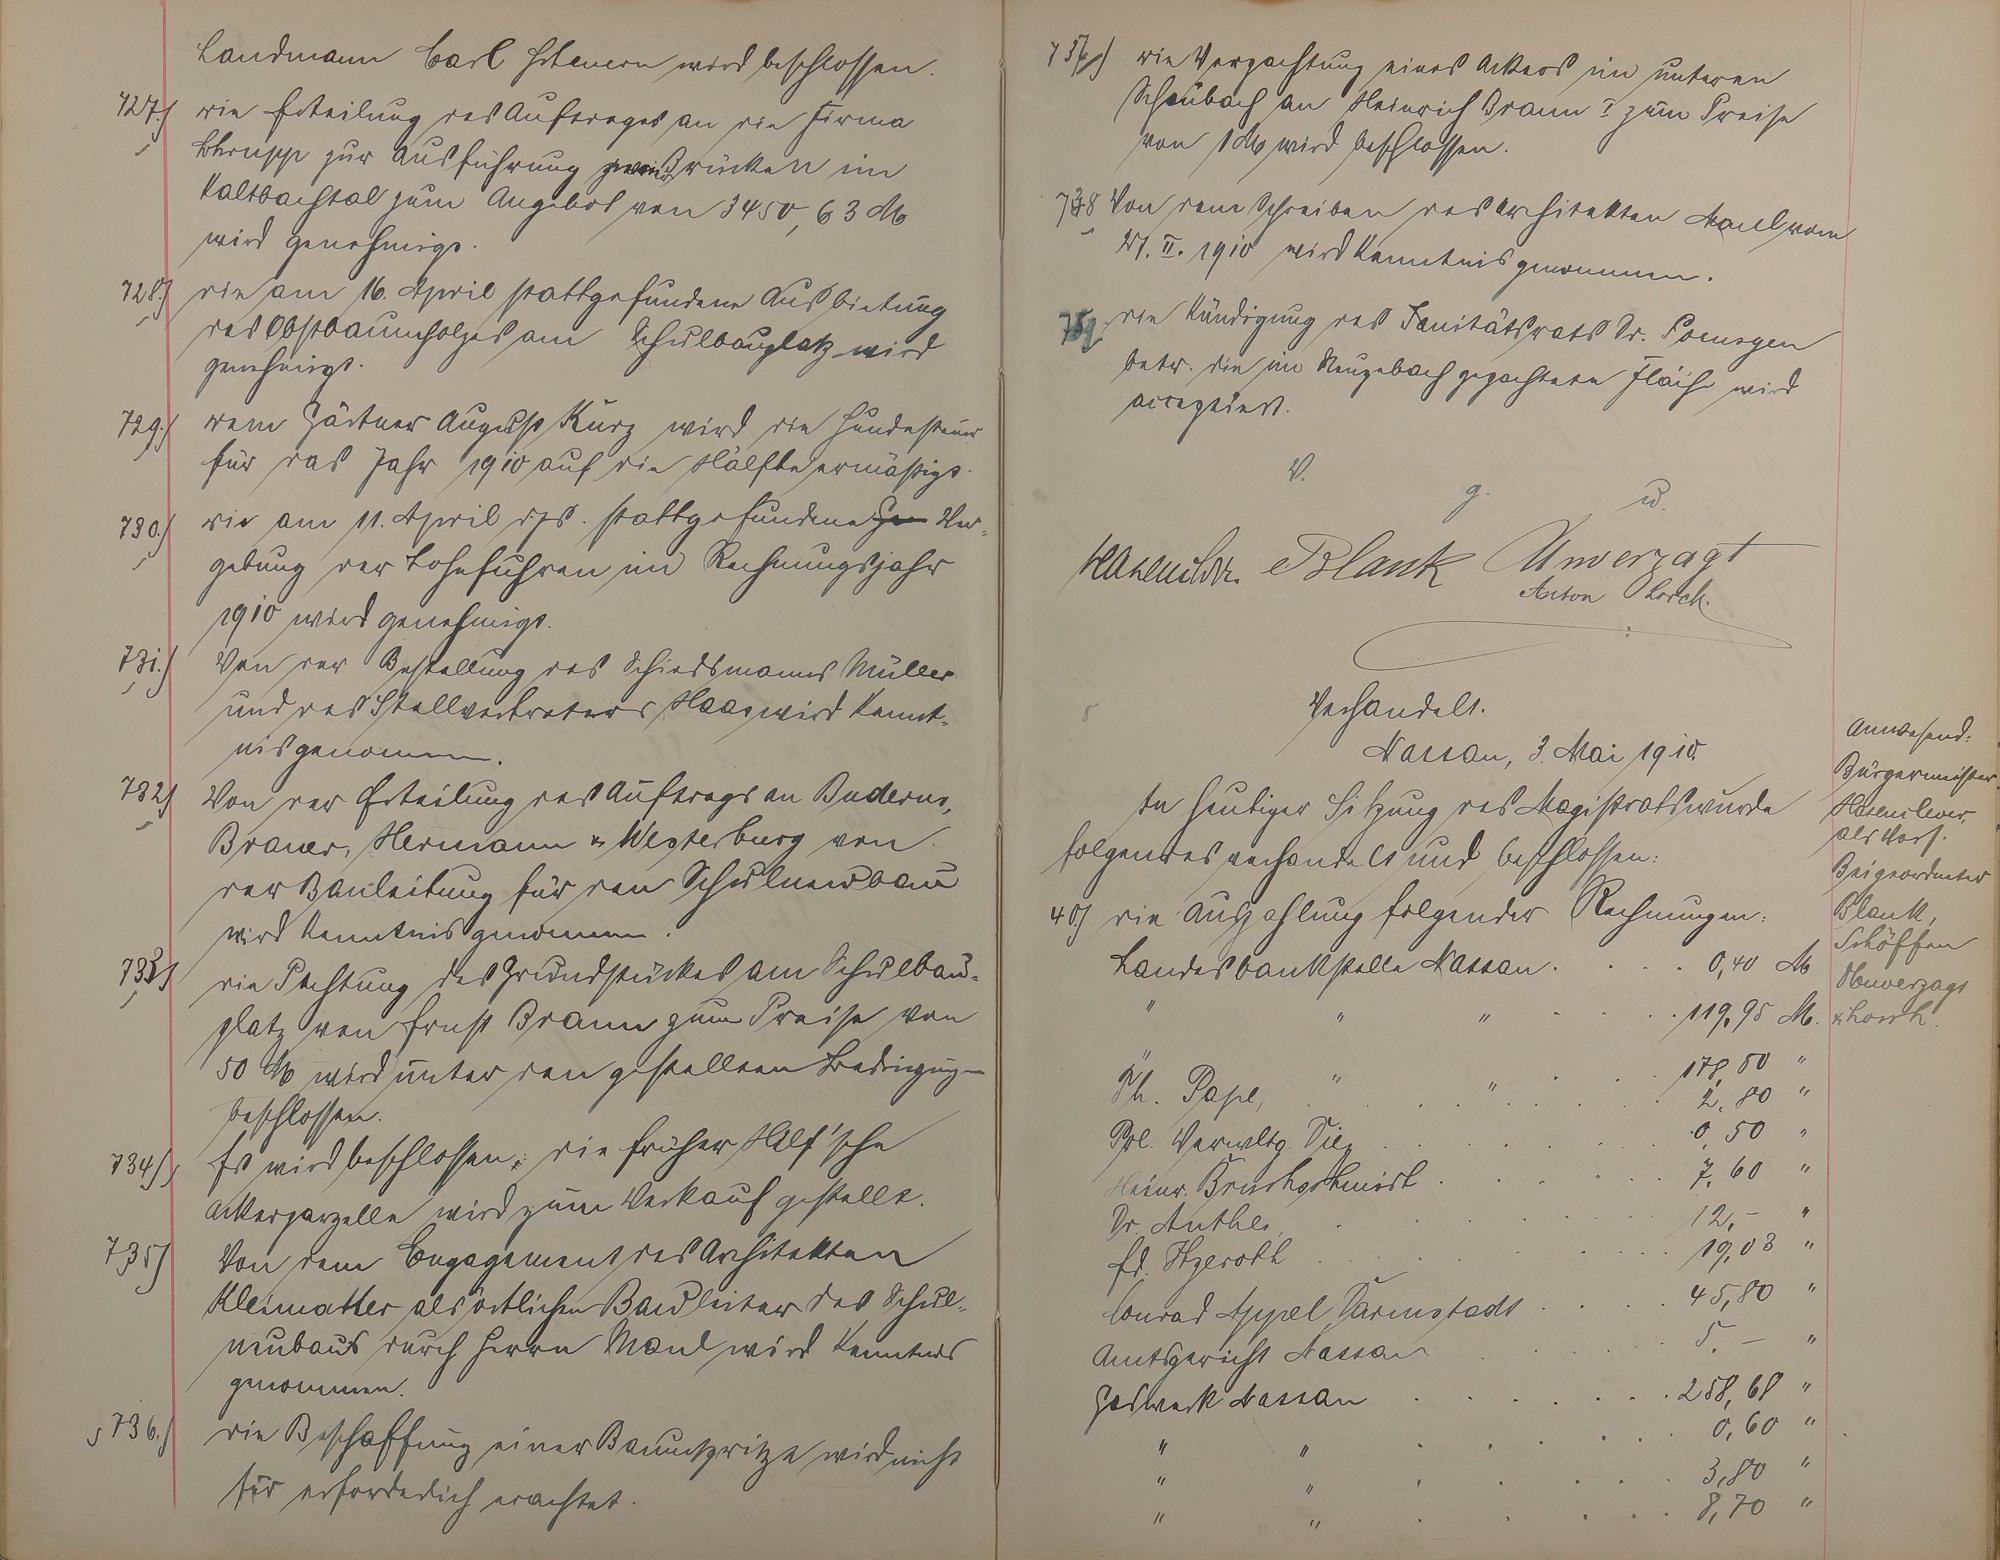 Landmann Carl wird beschlossen.
727.) die Erteilung des Auftrages an die Firma
zur Ausführung zweier Brücken im
Kaltbachtal zum Angebot von 3450,63 M
wird genehmigt.
728.) die am 16. April stattgefundene Ausbietung
des Obstbaumholzes am Schulbauplatz wird
genehmigt.
729.) dem Gärtner August Kurz wird die Hundesteuer
für das Jahr 1910 auf die Hälfte ermäßigt.
730.) die am 11. April ds. Js. stattgefundene Ver-
gebung der Lohnfuhren im Rechnungsjahr
1910 wird genehmigt.
731.) Von der Bestellung des Schiedsmanns Müller
und des Stellvertreters Haas wird Kennt-
nis genommen.
732.) Von der Erteilung des Auftrags an Buderus,
Brauer, Hermann & Westerburg von
der Bauleitung für den Schulneubau
wird Kenntnis genommen.
733.) die Pachtung des Grundstückes am Schulbau-
platz von Ernst Braun zum Preise von
50 M wird unter den gestellten Bedingungen
beschlossen.
734.) Es wird beschlossen, die früher Hilf'sche
Ackerparzelle wird zum Verkauf gestellt.
735.) Von dem Engagement des Architekten
als örtlichen Bauleiter des Schul-
neubaus durch Herrn Manl wird Kenntnis
genommen.
736.) die Beschaffung einer Baumspritze wird nicht
für erforderlich erachtet.
737.) die Verpachtung eines Ackers im unteren
an Heinrich Braun I zum Preise
von 1 M wird beschlossen.
738 Von dem Schreiben des Architekten Manl vom
21. II. 1910 wird Kenntnis genommen.
739. die Kündigung des Sanitätsrats Dr. Poensgen
betr. die im gepachtete Fläche wird
acceptiert.
V. g. u.
Hasenclever. Blank Unverzagt
Anton Lorch.
Verhandelt.
Nassau, 3. Mai 1910.
In heutiger Sitzung des Magistrats wurde
folgendes verhandelt und beschlossen:
40.) die Auszahlung folgender Rechnungen:
Landesbankstelle Nassau . . . . 0,40 M
" " " . . . . 119,95 M.
" " " . . . 178,50 "
Ph. Pape, . . . . . . . 2,80 "
Pol. Verwltg. Diez . . . . . 0,50 "
Heinr. . . . . . 7,60 "
Dr. Anthes . . . . . . 12,- "
Ed. Hyeroth . . . . . . 19,03 "
Conrad Appel, Darmstadt . . . . 45,80 "
Amtsgericht Nassau . . . . 5,- "
Gaswerk Nassau . . . . . 258,68 "
" " . . . . 0,60 "
" " . . . . 3,80 "
" " . . . . 8,70 "
Anwesend:
Bürgermeister
Hasenclever,
als Vors.
Beigeordneter
Blank,
Schöffen
Unverzagt
& Lorch.